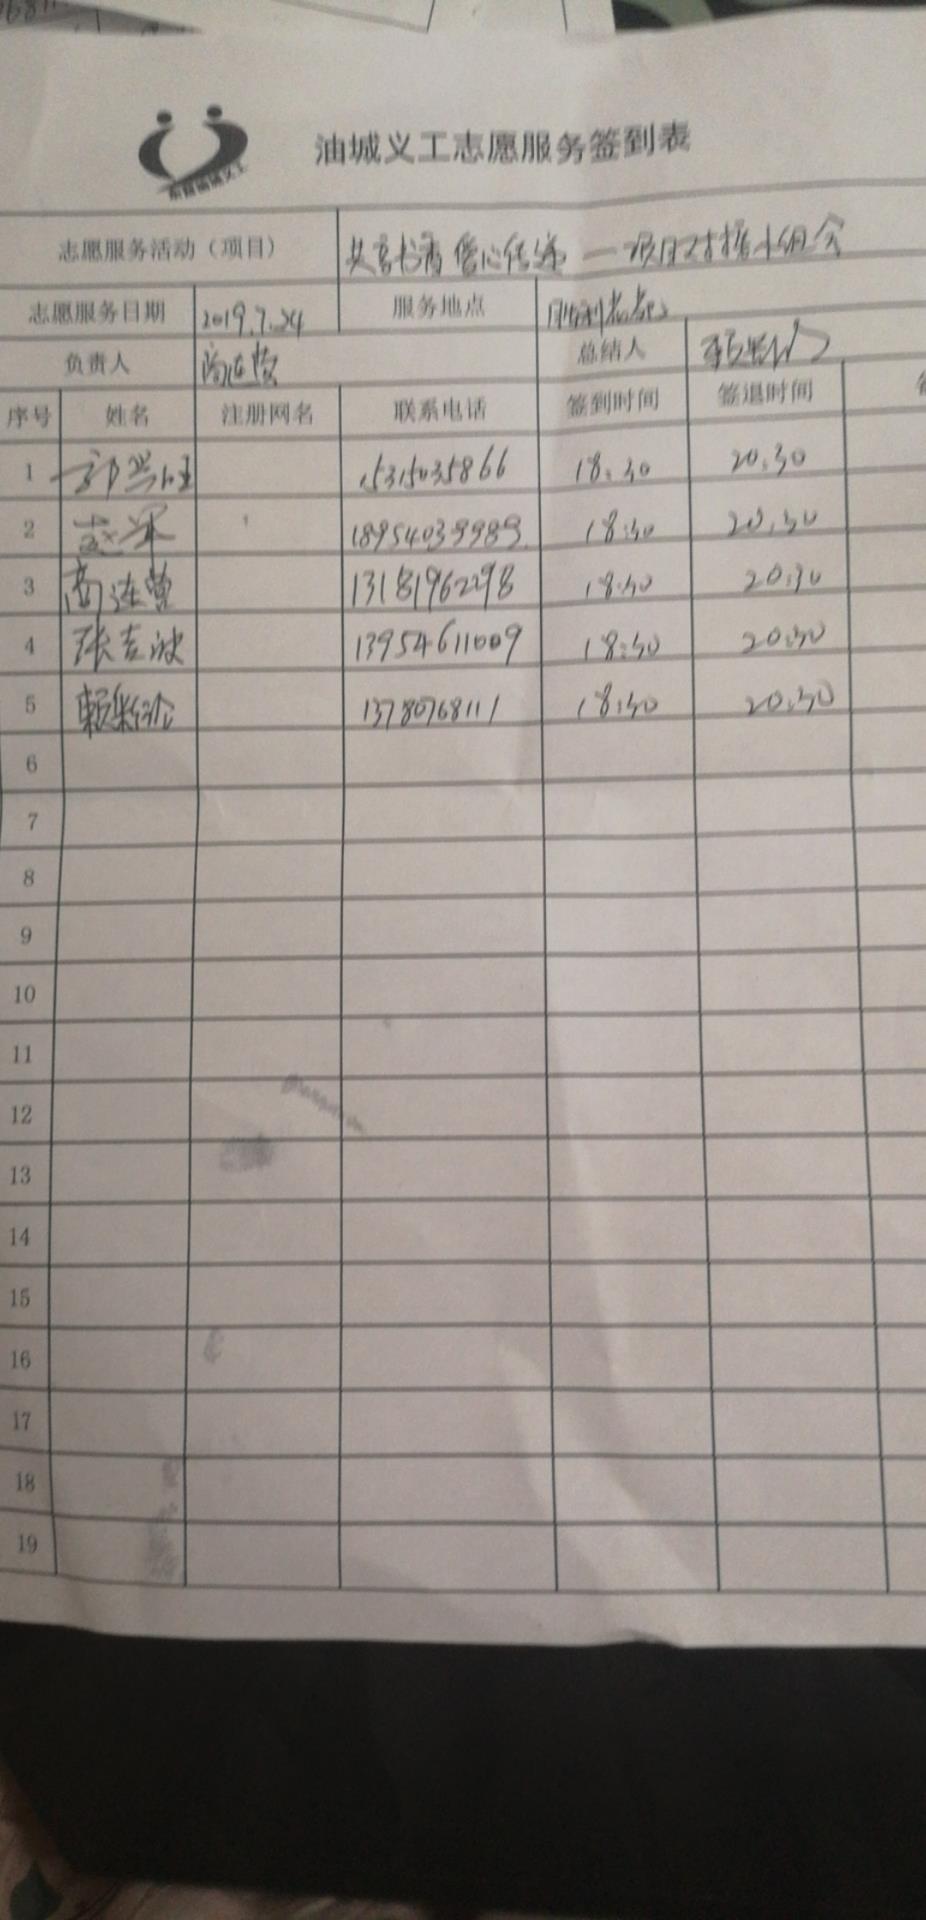 油城义工志愿服务签到表
志愿服务活动（项目） 共享书香 爱心传递 — 项目对接小组会
志愿服务日期 2019.7.24 服务地点 胜利
负责人 商连营 总结人
序号 姓名 注册网名 联系电话 签到时间 签退时间
1 郭兴旺 15315035866 18:30 20:30
2 18954039989 18:30 20:30
3 商连营 13181962298 18:30 20:30
4 张吉波 13954611009 18:30 20:30
5 赖 13780768111 18:30 20:30
6
7
8
9
10
11
12
13
14
15
16
17
18
19